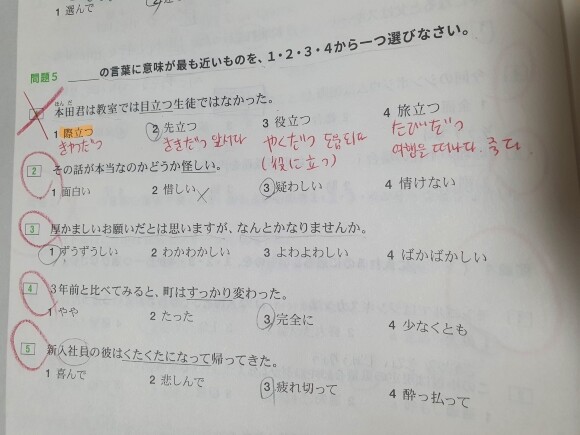 1 選んで
問題5 ＿＿＿の言葉に意味が最も近いものを、1・2・3・4から一つ選びなさい。
ほんだ
1 本田君は教室では目立つ生徒ではなかった。
1 際立つ 2 先立つ 3 役立つ 4 旅立つ
きわだつ さきだつ 앞서다 やくだつ 도움되다 たびだつ
(役に立つ) 여행을 떠나다. 죽다.
2 その話が本当なのかどうか怪しい。
1 面白い 2 惜しい 3 疑わしい 4 情けない
3 厚かましいお願いだとは思いますが、なんとかなりませんか。
1 ずうずうしい 2 わかわかしい 3 よわよわしい 4 ばかばかしい
4 3年前と比べてみると、町はすっかり変わった。
1 やや 2 たった 3 完全に 4 少なくとも
5 新入社員の彼はくたくたになって帰ってきた。
1 喜んで 2 悲しんで 3 疲れ切って 4 酔っ払って